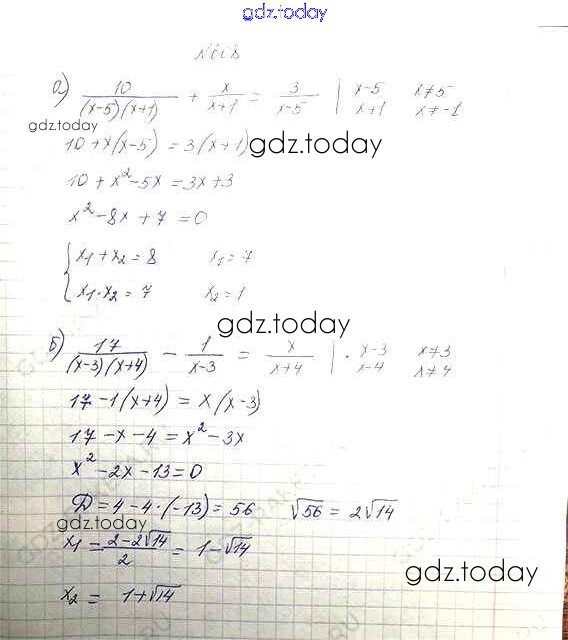 gdz.today
а) 10/((x-5)(x+1)) + x/(x+1) = 3/(x-5) | x-5 x+1 x≠5 x≠-1
gdz.today
10+x(x-5) = 3(x+1)
gdz.today
10+x²-5x=3x+3
x²-8x+7=0
{x₁+x₂=8 x₁=7
x₁·x₂=7 x₂=1
gdz.today
б) 17/((x-3)(x+4)) - 1/(x-3) = x/(x+4) | · x-3 x-4 x≠3 x≠4
17-1(x+4) = x(x-3)
17-x-4=x²-3x
x²-2x-13=0
D=4-4·(-13)=56 √56=2√14
gdz.today
x₁ = (2-2√14)/2 = 1-√14
gdz.today
x₂ = 1+√14